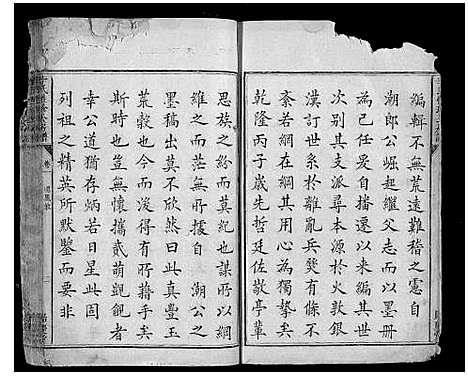 編輯不無荒遠難稽之憲自
潮郎公崛起繼父志而以墨冊
為己任焉自播遷以來編其世
次別其支派尋本源於火敦銀
漢訂世系於離亂兵燹有條不
紊若網在綱其用心為獨摯矣
乾隆丙子歲先哲廷佐敬亭輩
恩族之紛而莫紀也謀所以綱
維之而茫無所據自 潮公之
墨稿出莫不欣然曰此真豐玉
荒穀也今而後得有所藉手矣
斯時也豈無懷攜貳萌覬覦者
幸公道猶存炳若日星此固
列祖之精英所默鑒而要非